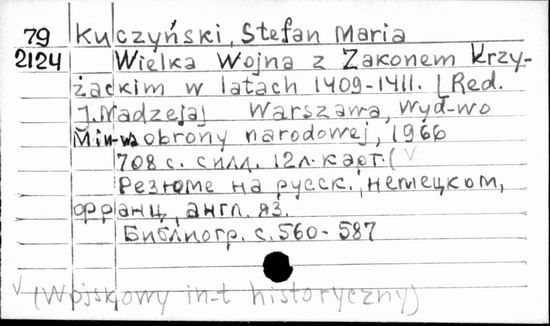 79 Kuczyński, Stefan Maria
2124 Wielka Wojna z Zakonem Krzy-
żackim w latach 1409-1411. [Red.
J. Nadzeja] Warszawa, Wyd-wo
Min-wa obrony narodowej, 1966
708 с. с илл. 12 л. карт. (
Резюме на русск., немецком,
франц., англ. яз.
Библиогр. с. 560-587
(Wojskowy in-t historyczny)